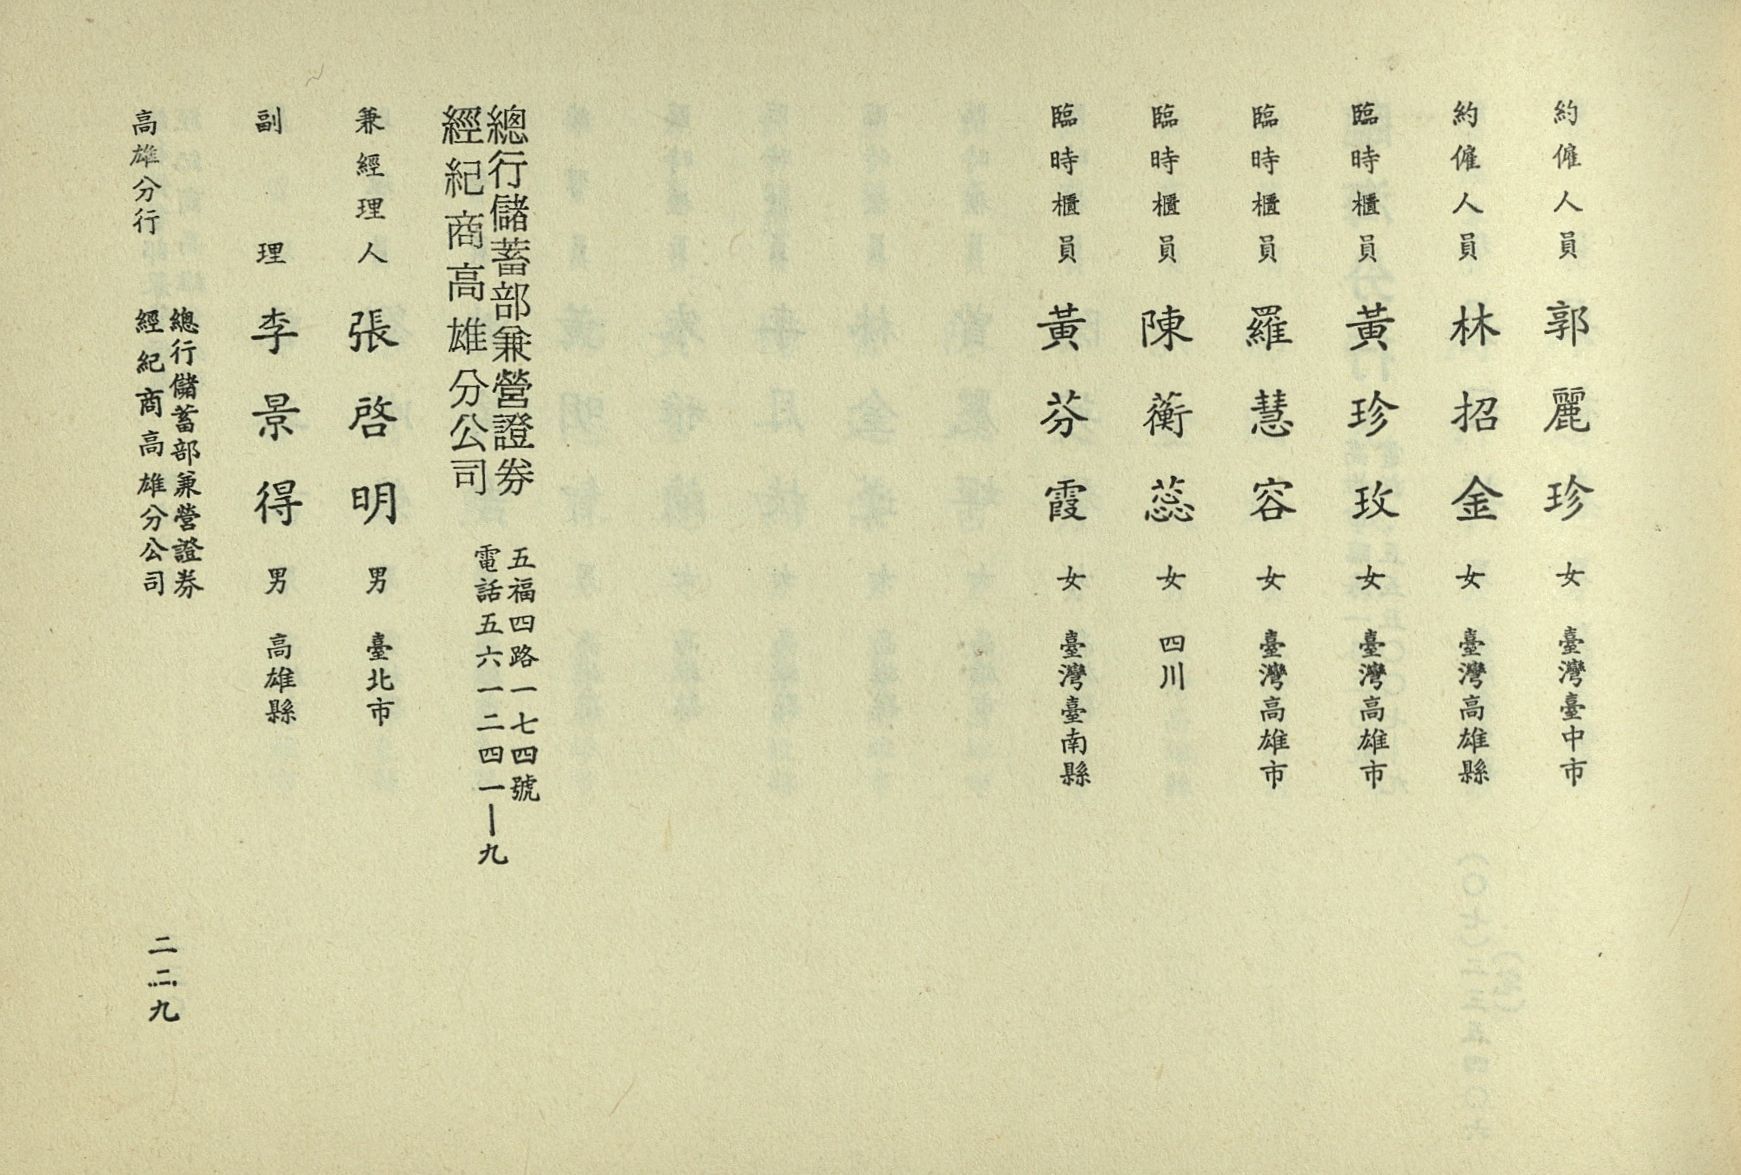 約僱人員 郭麗珍 女 臺灣臺中市
約僱人員 林招金 女 臺灣高雄縣
臨時櫃員 黃珍玫 女 臺灣高雄市
臨時櫃員 羅慧容 女 臺灣高雄市
臨時櫃員 陳蘅蕊 女 四川
臨時櫃員 黃芬霞 女 臺灣臺南縣
總行儲蓄部兼營證券
經紀商高雄分公司
五福四路一七四號
電話五六一二四一—九
兼經理人 張啓明 男 臺北市
副理 李景得 男 高雄縣
高雄分行
總行儲蓄部兼營證券
經紀商高雄分公司
二二九